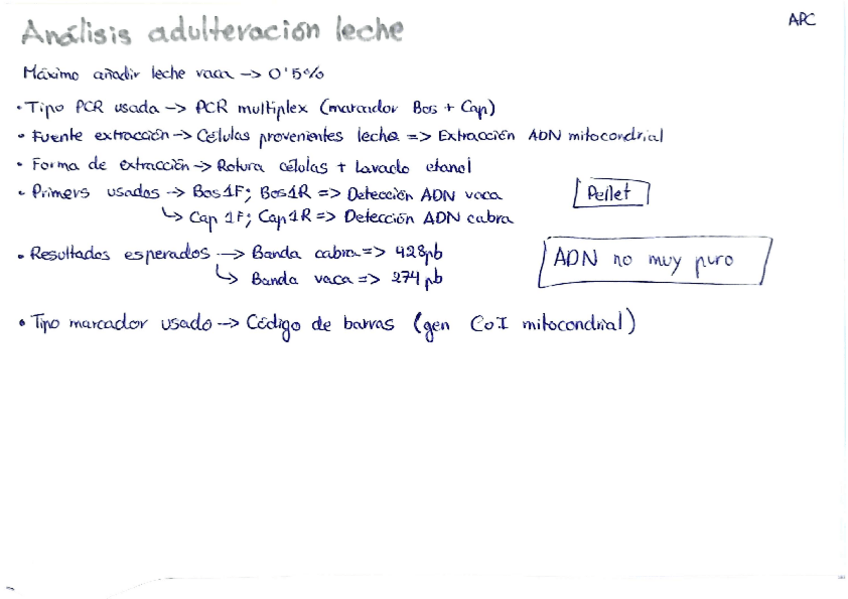 APC
Análisis adulteración leche
Máximo añadir leche vaca -> 0'5%
• Tipo PCR usada -> PCR multiplex (marcador Bos + Cap)
• Fuente extracción -> Células provenientes leche => Extracción ADN mitocondrial
• Forma de extracción -> Rotura células + Lavado etanol
• Primers usados -> Bos1F; Bos1R => Detección ADN vaca
Pellet
↳ Cap 1F; Cap1R => Detección ADN cabra
• Resultados esperados -> Banda cabra => 428pb
ADN no muy puro
↳ Banda vaca => 274 pb
• Tipo marcador usado -> Código de barras (gen CoI mitocondrial)